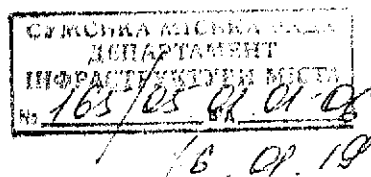 СУМСЬКА МІСЬКА РАДА
ДЕПАРТАМЕНТ
ІНФРАСТРУКТУРИ МІСТА
№ 163/03.01.01-06
16.01.19